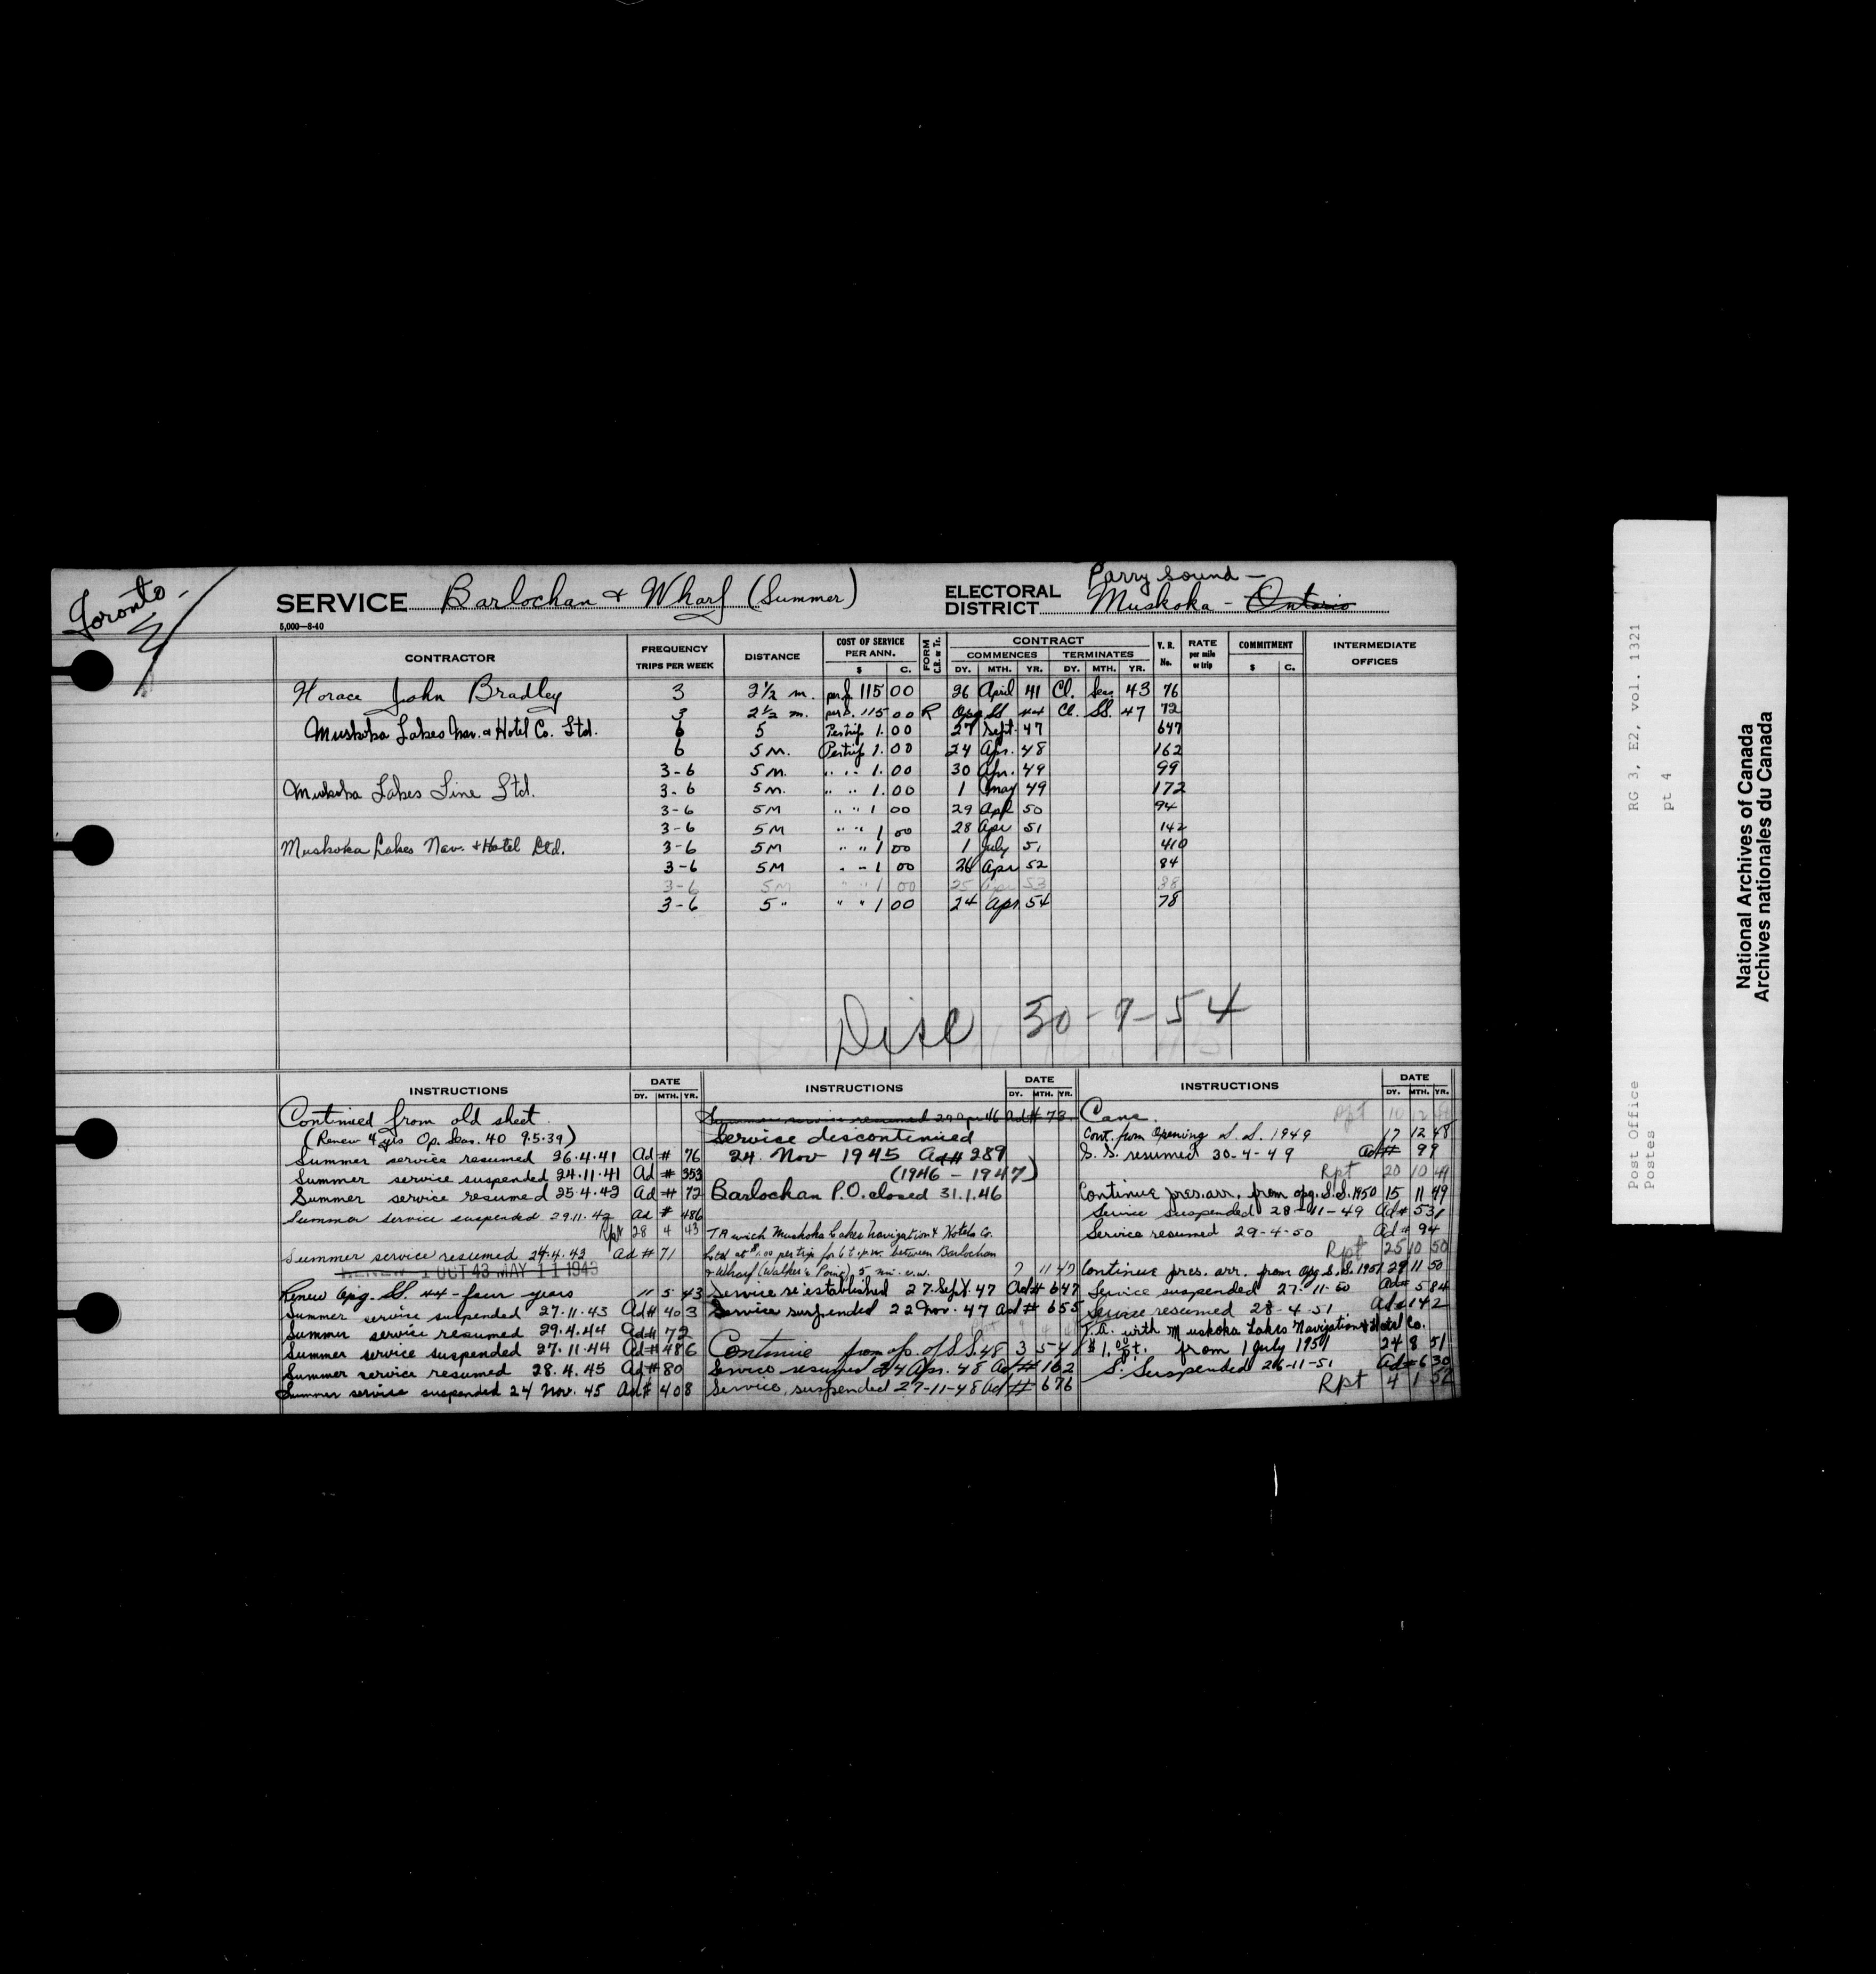 Toronto -
SERVICE Barlochan & Wharf (Summer)
ELECTORAL DISTRICT Parry Sound - Muskoka - Ontario
5,000—8-40
CONTRACTOR FREQUENCY TRIPS PER WEEK DISTANCE COST OF SERVICE PER ANN. $ C. FORM C.R. or Tr. CONTRACT COMMENCES DY. MTH. YR. TERMINATES DY. MTH. YR. V. R. No. RATE per mile or trip COMMITMENT $ C. INTERMEDIATE OFFICES
Horace John Bradley 3 2½ m. 115 00 26 April 41 Cl. Seas 43 76
3 2½ m. per S. 115 00 R Opg SS 44 Cl. SS. 47 72
Muskoka Lakes Nav. & Hotel Co. Ltd. 6 5 Per trip 1.00 27 Sept. 47 647
6 5 M. Per trip 1.00 24 Apr. 48 162
3-6 5 M. " " 1.00 30 Apr. 49 99
Muskoka Lakes Line Ltd. 3-6 5 M. " " 1.00 1 May 49 172
3-6 5 M " " 1 00 29 Apl 50 94
3-6 5 M " " 1 00 28 Apr 51 142
Muskoka Lakes Nav. + Hotel Ltd. 3-6 5 M " " 1 00 1 July 51 410
3-6 5 M " " 1 00 26 Apr 52 84
3-6 5 M " " 1 00 25 Apr 53 88
3-6 5 " " " 1 00 24 Apr 54 78
Disc 30-9-54
INSTRUCTIONS DATE DY. MTH. YR.
Continued from old sheet
(Renew 4 yrs Op. Seas. 40 9.5.39)
Summer service resumed 26.4.41 Ad # 76
Summer service suspended 24.11.41 Ad # 353
Summer service resumed 25.4.42 Ad # 72
Summer service suspended 29.11.42 Ad # 486
Rpt 28 4 43
Summer service resumed 24.4.43 Ad # 71
RENEW 1 OCT 43 MAY 11 1943
Renew Opg. SS. 44 - four years 11 5 43
Summer service suspended 27.11.43 Ad # 403
Summer service resumed 29.4.44 Ad # 72
Summer service suspended 27.11.44 Ad # 486
Summer service resumed 28.4.45 Ad # 80
Summer service suspended 24 Nov. 45 Ad # 408
INSTRUCTIONS DATE DY. MTH. YR.
Summer service resumed 27 Apr 46 Ad # 73
Service discontinued
24 Nov 1945 Ad # 289
(1946 - 1947)
Barlochan P.O. closed 31.1.46
TA with Muskoka Lakes Navigation & Hotels Co.
Ltd at $1.00 per trip for 6 t.p.w. between Barlochan
& Wharf (Walker's Point), 5 mi. 7 11 47
Service re-established 27 Sept. 47 Ad # 647
Service suspended 22 Nov. 47 Ad # 655
Continue from op. of S.S. 48 3 5 48
Service resumed 24 Apr. 48 Ad # 162
Service suspended 27-11-48 Ad # 676
INSTRUCTIONS DATE DY. MTH. YR.
Canc. Rpt 10 12
Cont. from Opening S.S. 1949 17 12 48
S.S. resumed 30-4-49 Ad # 99
Rpt 20 10 49
Continue pres. arr. from opg. S.S. 1950 15 11 49
Service Suspended 28-11-49 Ad # 531
Service resumed 29-4-50 Ad # 94
Rpt 25 10 50
Continue pres. arr. from opg S.S. 1951 29 11 50
Service suspended 27-11-50 Ad # 584
Service resumed 28-4-51 Ad # 142
T.A. with Muskoka Lakes Navigation & Hotel Co.
$1.00 p.t. from 1 July 1951 24 8 51
S. Suspended 26-11-51 Ad # 630
Rpt 4 1 52
Post Office RG 3, E2, vol. 1321
Postes pt 4
National Archives of Canada
Archives nationales du Canada